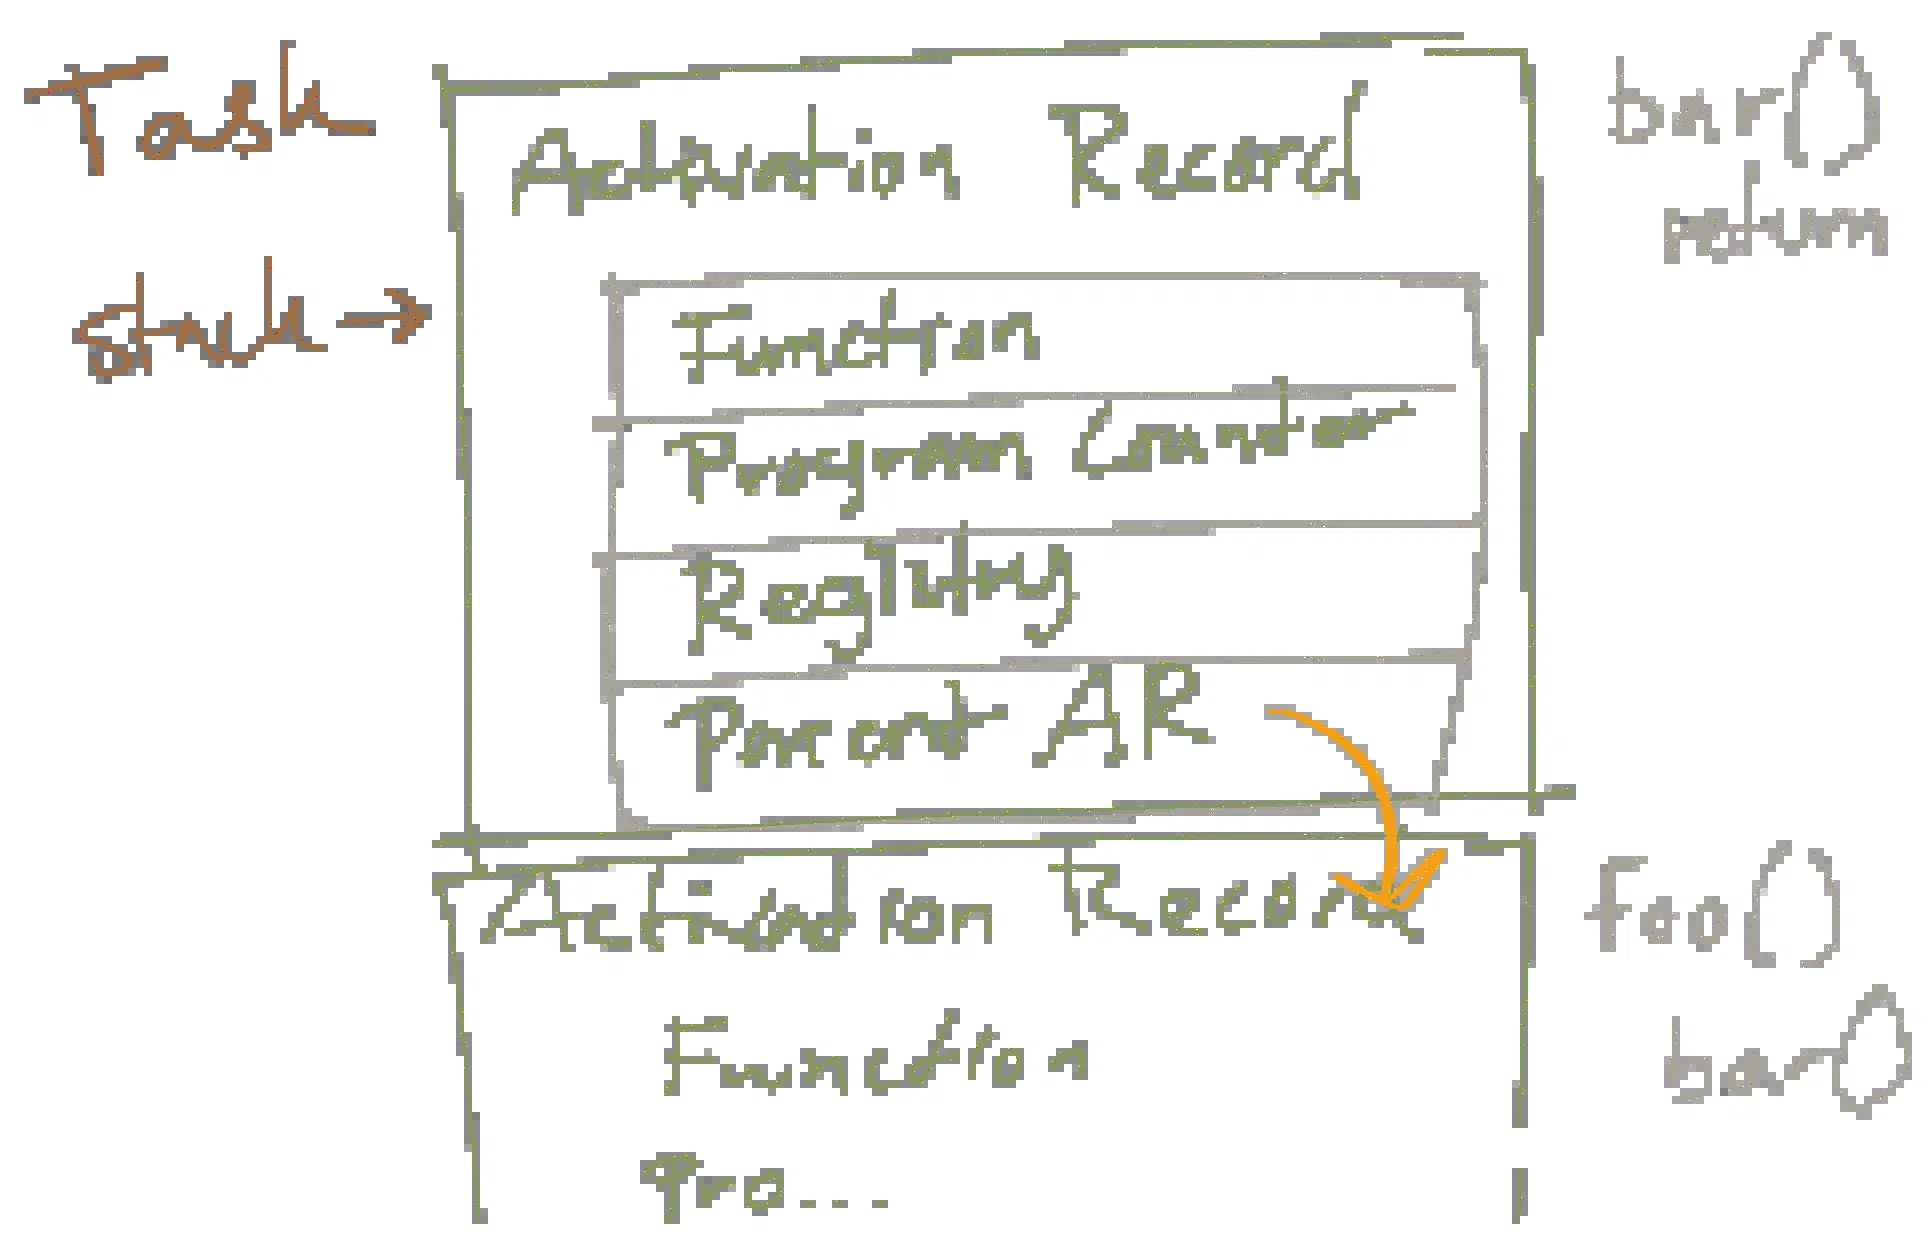 Task
stack →
Activation Record
Function
Program Counter
Registry
Parent AR
bar()
return
Activation Record
Function
Pro...
foo()
bar()